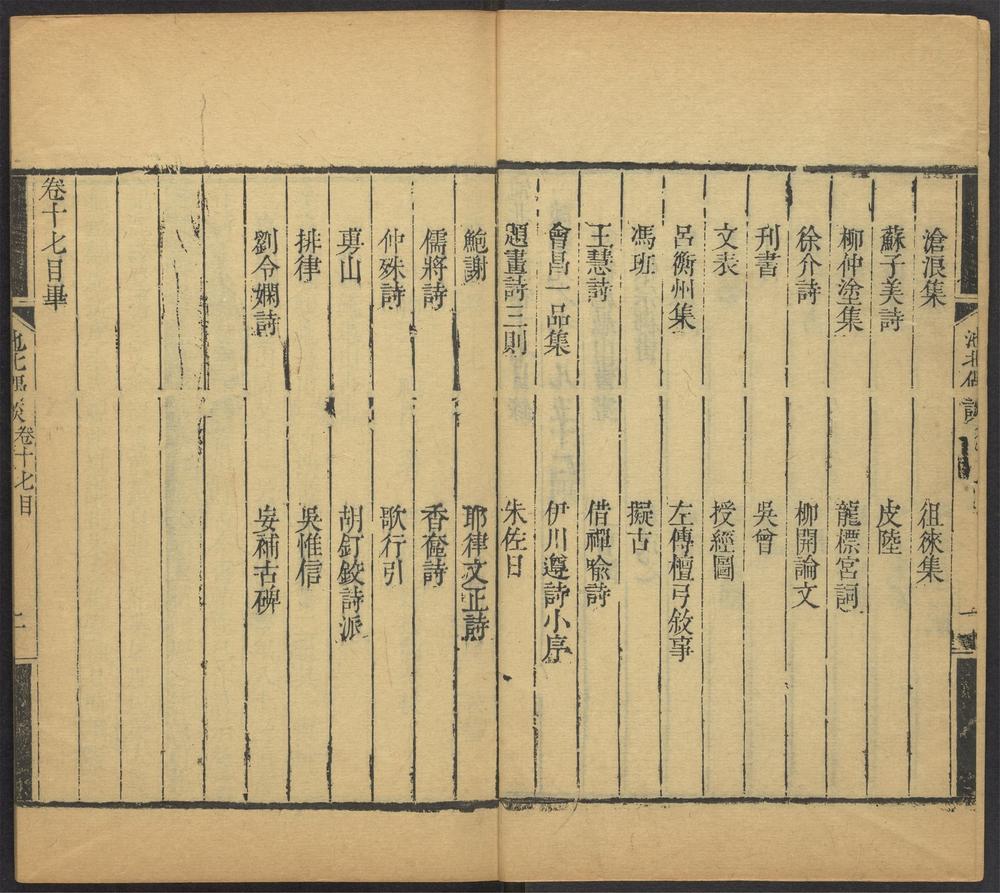 滄浪集 徂徠集
蘇子美詩 皮陸
柳仲塗集 龍標宮詞
徐介詩 柳開論文
刊書 吳曾
文表 授經圖
呂衡州集 左傳檀弓敘事
馮班 擬古
王慧詩 借禪喻詩
會昌一品集 伊川遵詩小序
題畫詩三則 朱佐日
鮑謝 耶律文正詩
儒將詩 香奩詩
仲殊詩 歌行引
胡釘鉸詩派
排律 吳惟信
劉令嫻詩 妄補古碑
卷十七目畢
池北偶談 卷十七目